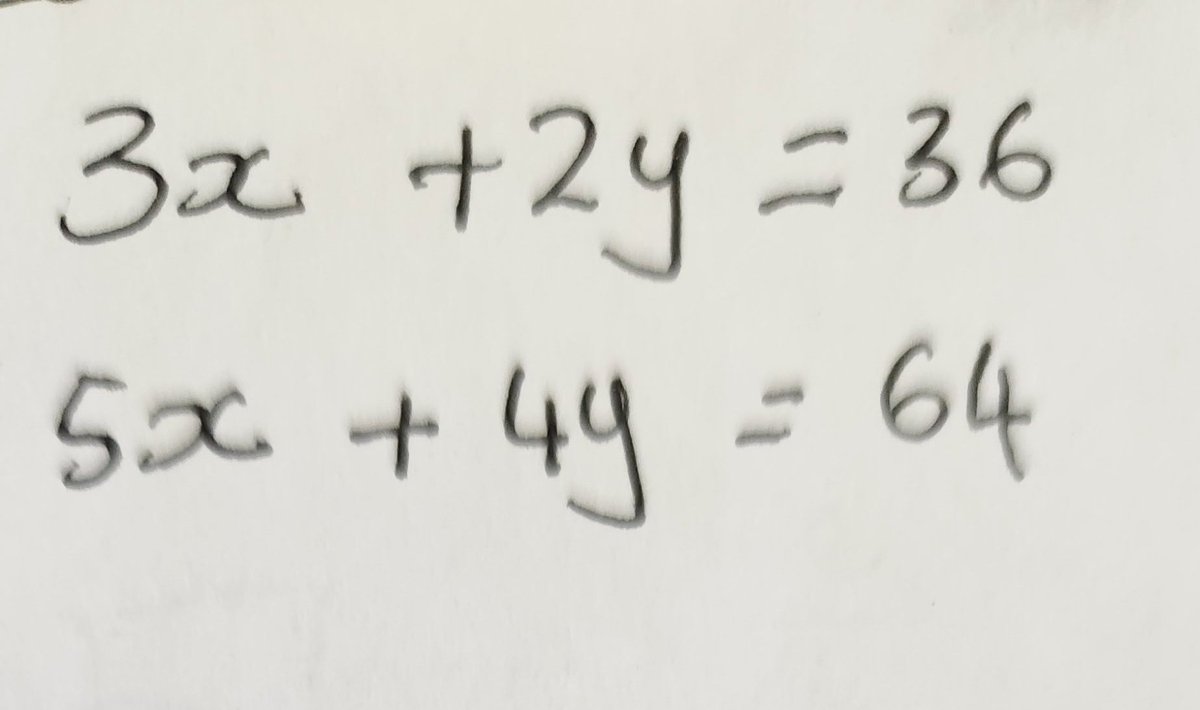 3x + 2y = 36
5x + 4y = 64